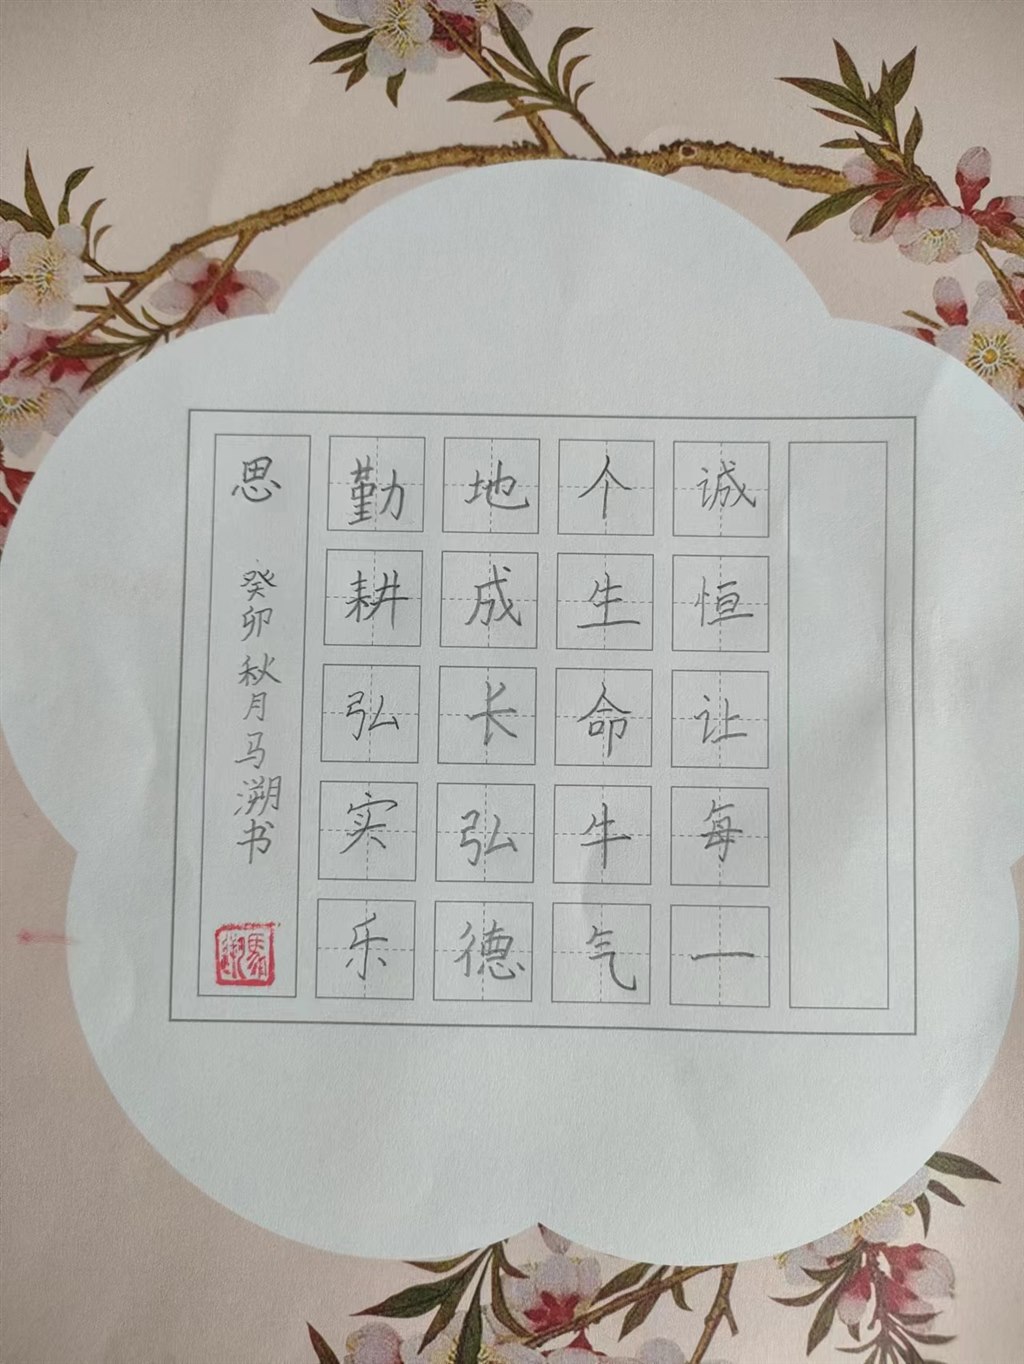 诚恒让每一
个生命牛气
地成长弘德
勤耕弘实乐
思 癸卯秋月马溯书